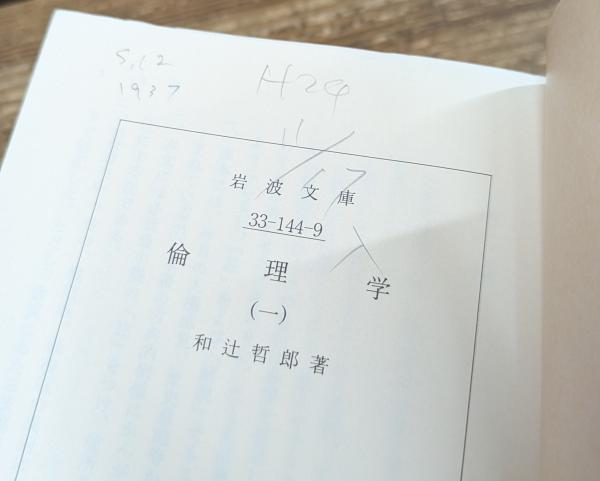 S.12
1937
H24
11/17
岩波文庫
33-144-9
倫理学
(一)
和辻哲郎著